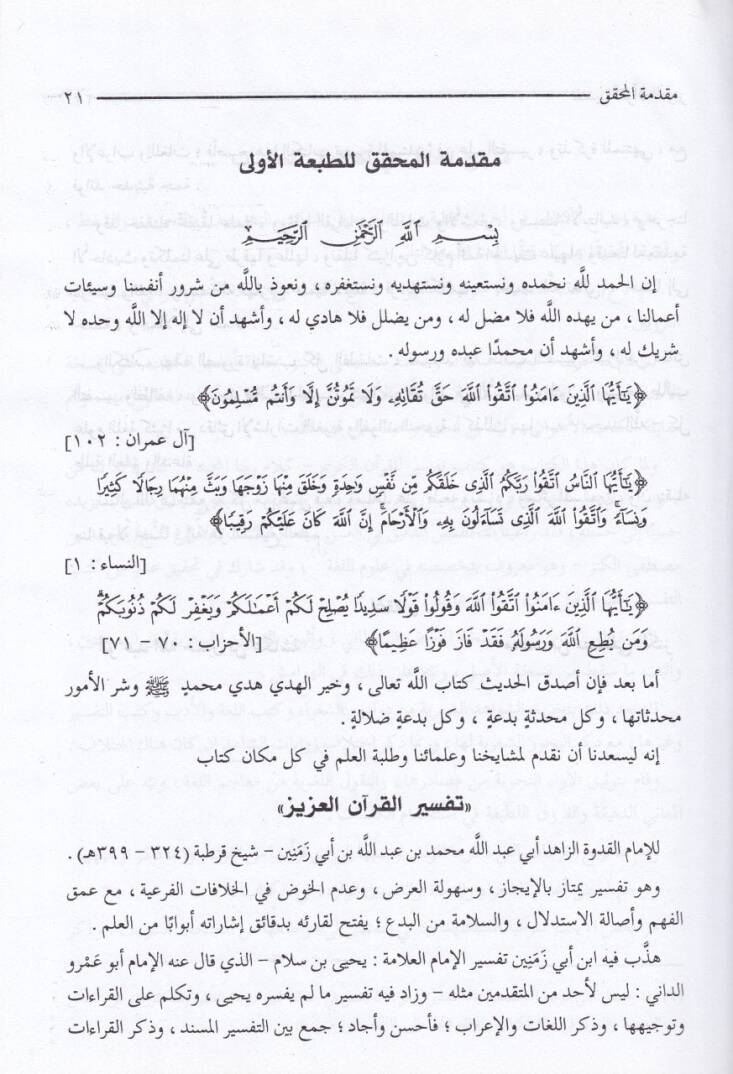 مقدمة المحقق ٢١
مقدمة المحقق للطبعة الأولى
بِسْمِ ٱللَّهِ ٱلرَّحْمَٰنِ ٱلرَّحِيمِ
إن الحمد للَّه نحمده ونستعينه ونستهديه ونستغفره ، ونعوذ باللَّه من شرور أنفسنا وسيئات
أعمالنا ، من يهده اللَّه فلا مضل له ، ومن يضلل فلا هادي له ، وأشهد أن لا إله إلا اللَّه وحده لا
شريك له ، وأشهد أن محمدًا عبده ورسوله .
﴿يَٰٓأَيُّهَا ٱلَّذِينَ ءَامَنُوا۟ ٱتَّقُوا۟ ٱللَّهَ حَقَّ تُقَائِهِۦ وَلَا تَمُوتُنَّ إِلَّا وَأَنتُم مُّسْلِمُونَ﴾
[آل عمران : ١٠٢]
﴿يَٰٓأَيُّهَا ٱلنَّاسُ ٱتَّقُوا۟ رَبَّكُمُ ٱلَّذِى خَلَقَكُم مِّن نَّفْسٍ وَٰحِدَةٍ وَخَلَقَ مِنْهَا زَوْجَهَا وَبَثَّ مِنْهُمَا رِجَالًا كَثِيرًا
وَنِسَآءً وَٱتَّقُوا۟ ٱللَّهَ ٱلَّذِى تَسَآءَلُونَ بِهِۦ وَٱلْأَرْحَامَ إِنَّ ٱللَّهَ كَانَ عَلَيْكُمْ رَقِيبًا﴾
[النساء : ١]
﴿يَٰٓأَيُّهَا ٱلَّذِينَ ءَامَنُوا۟ ٱتَّقُوا۟ ٱللَّهَ وَقُولُوا۟ قَوْلًا سَدِيدًا يُصْلِحْ لَكُمْ أَعْمَٰلَكُمْ وَيَغْفِرْ لَكُمْ ذُنُوبَكُمْ
وَمَن يُطِعِ ٱللَّهَ وَرَسُولَهُۥ فَقَدْ فَازَ فَوْزًا عَظِيمًا﴾ [الأحزاب : ٧٠ – ٧١]
أما بعد فإن أصدق الحديث كتاب اللَّه تعالى ، وخير الهدي هدي محمدٍ ﷺ وشر الأمور
محدثاتها ، وكل محدثةٍ بدعةٍ ، وكل بدعةٍ ضلالة .
إنه ليسعدنا أن نقدم لمشايخنا وعلمائنا وطلبة العلم في كل مكان كتاب
«تفسير القرآن العزيز»
للإمام القدوة الزاهد أبي عبد اللَّه محمد بن عبد اللَّه بن أبي زَمَنِين – شيخ قرطبة (٣٢٤ – ٣٩٩هـ) .
وهو تفسير يمتاز بالإيجاز ، وسهولة العرض ، وعدم الخوض في الخلافات الفرعية ، مع عمق
الفهم وأصالة الاستدلال ، والسلامة من البدع ؛ يفتح لقارئه بدقائق إشاراته أبوابًا من العلم .
هذَّب فيه ابن أبي زَمَنِين تفسير الإمام العلامة : يحيى بن سلام – الذي قال عنه الإمام أبو عَمْرو
الداني : ليس لأحد من المتقدمين مثله – وزاد فيه تفسير ما لم يفسره يحيى ، وتكلم على القراءات
وتوجيهها ، وذكر اللغات والإعراب ؛ فأحسن وأجاد ؛ جمع بين التفسير المسند ، وذكر القراءات